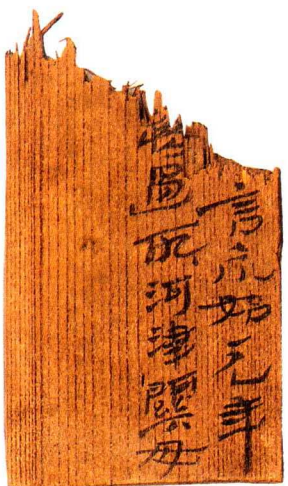 言元始元年
過所河津關毋